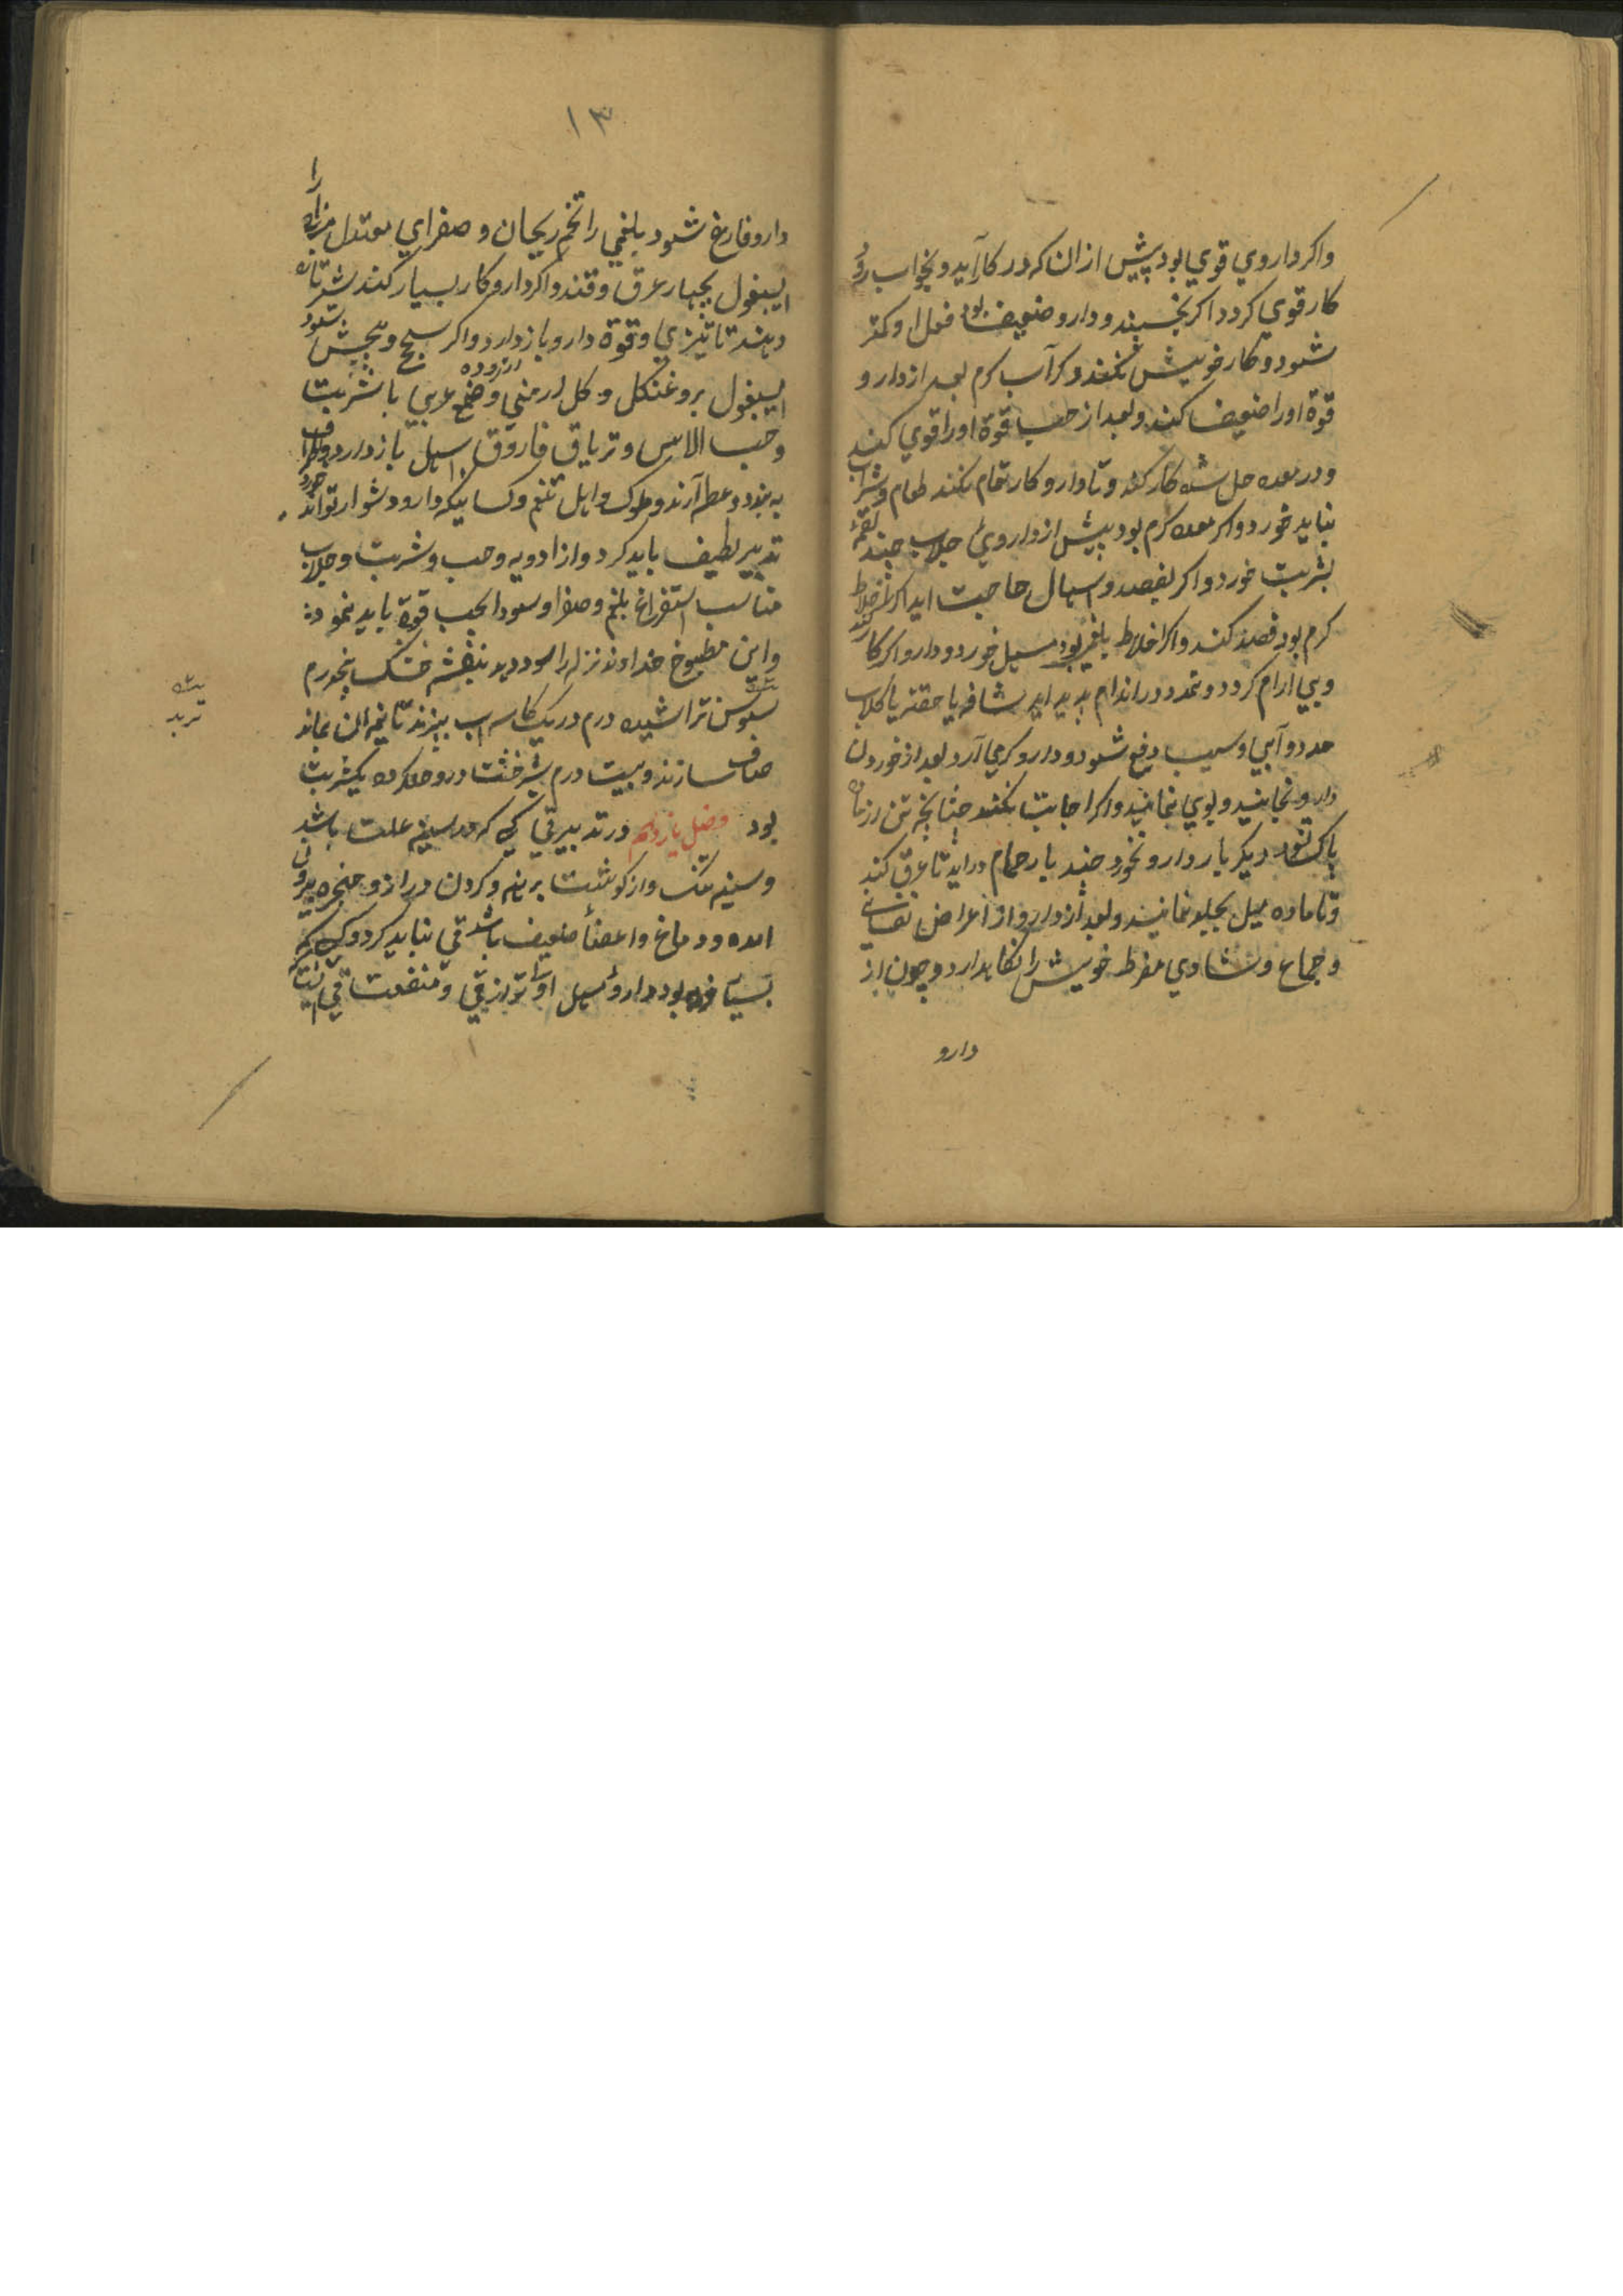 واکر داروي قوي بود پیش از ان که در کار آید و بخواب رود
کار قوي کردد اکر بخسپند و دارو ضعیف بود فعل او کمتر
شود و کار خویش نکند و کر آب کرم بعد از دارو
قوة او را ضعیف کند و بعد از حب قوة او را قوي کند
و در معده حل شده کار کند و تا دارو کار تمام نکند طعام و شراب
نباید خورد و اکر معده کرم بود پیش از داروئ جلاب چند لقمه
بشربت خورد و اکر بفصد و اسهال حاجت اید اکر اخلاط
کرم بود فصد کنند و اکر اخلاط بلغمي بود مسهل خورد و دارو اکر کار نکند
و بي ارام کردد و تمدد در اندام پدید اید شافه یا حقنه یا کلاب
دو آبي و سیب دفع شود و دارو کرمي آرد بعد از خوردن
دارو نخایند و بوي نمایند و اکر اجابت نکند چنانچه تن از ماده
پاک نشود دیکر بار دارو نخورد چند بار حمام دراید تا عرق کند
و تا ماده میل بجلد نمایند و بعد از دارو از اعراض نفسانے
و جماع و شادي مفرط خویش را نکاهدارد و چون از
دارو
۱۳
دارو فارغ شود بلغمي را تخم ریحان و صفراي معتدل مزاج را
اسبغول بچهار عرق و قند و اکر دارو کار بسیار کند شربتانه
دهند تا تیزي و قوة دارو باز دارد و اکر سحج و پیچش شود
در روده
اسبغول بروغنکل و کل ارمني و صمغ عربي با شربت
و حب الالاس و تریاق فاروق اسهال باز دارد و اطراف
به بندد و عطسه آرند و ملوک و اهل تنعم و کسانیکه دارو دشوار تواند خورد
تدبیر لطیف باید کرد و از ادویه و حب و شربت و جلاب
مناسب استفراغ بلغم و صفرا و سودا بحسب قوة باید نمود
و این مطبوخ خداوند نزله را سود دهد بنفشه خشک پنجدرم
سوس تراشیده درم در یک کاسه اب بپزند تا نیمه الن بماند
صاف سازند و بیست درم شیرخشت درو حل کرده یکشربت
بود فصل یازدهم در تدبیر قي کسي که در سینه علت باشد
و سینه تنک و از کوشت برهنه و کردن دراز و حنجره بیرون
امده و دماغ و اعضا ضعیف باشد قي نباید کرد و کسي که
بسیار فربه بود داروئ مسهل اولیتر از قي و منفعت قي انست
تربد